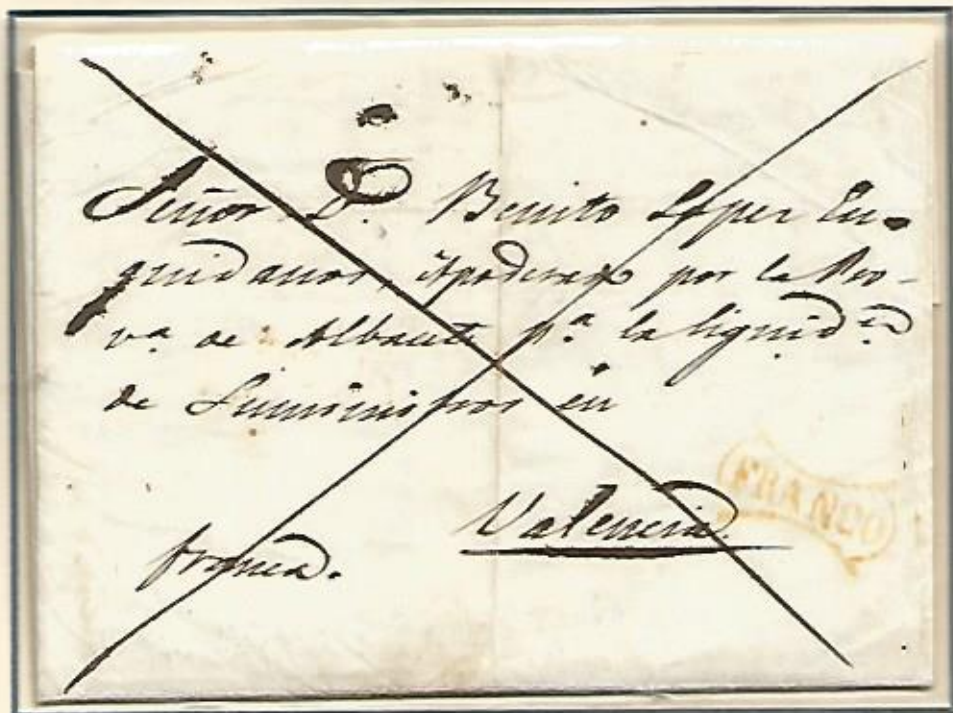 Señor D. Benito Lopez En-
guidanos, Apoderado por la Pro-
va. de Albacete pa. la liquidn.
de Suministros en
Valencia.
franca.
FRANCO